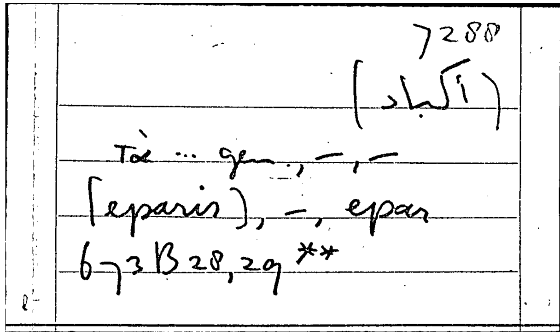 7288
(أكباد)
Tàẻ ... gen., –, –
[eparis], –, epar
673 B 28, 29 **